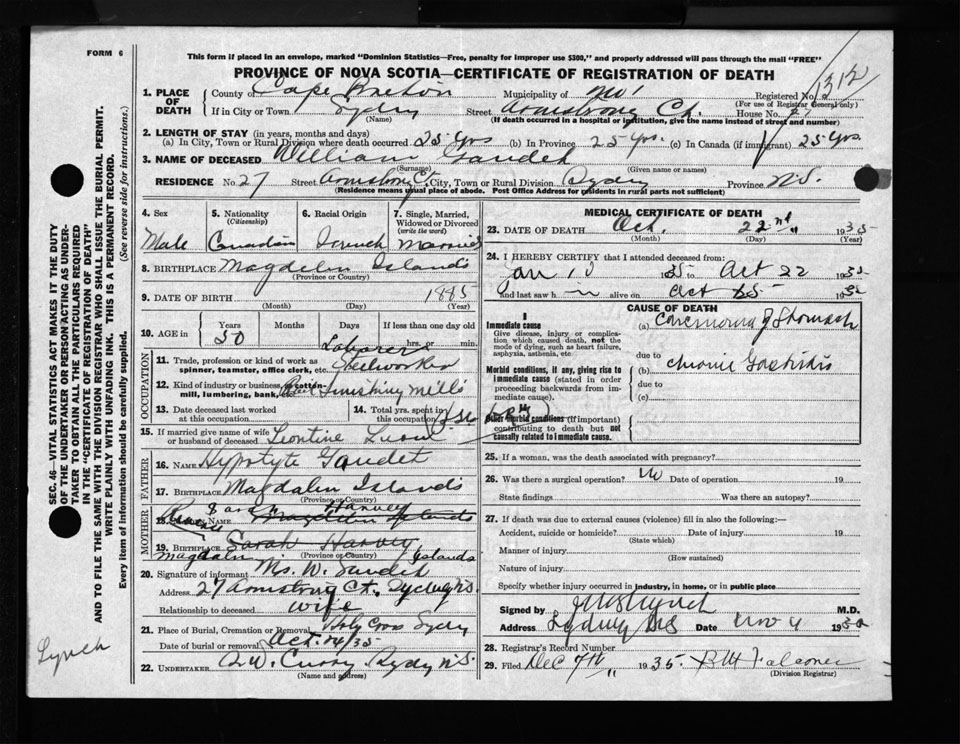 FORM 6
This form if placed in an envelope, marked "Dominion Statistics—Free, penalty for improper use $300," and properly addressed will pass through the mail "FREE"
PROVINCE OF NOVA SCOTIA—CERTIFICATE OF REGISTRATION OF DEATH
1312
1. PLACE OF DEATH
County of Cape Breton Municipality of No 1 Registered No.
(For use of Registrar General only)
If in City or Town Sydney Street Armstrong Ct. House No. 27
(Name) (If death occurred in a hospital or institution, give the name instead of street and number)
2. LENGTH OF STAY (in years, months and days)
(a) In City, Town or Rural Division where death occurred 25 yrs (b) in Province 25 yrs. (c) in Canada (if immigrant) 25 yrs
3. NAME OF DECEASED William Gaudet
(Surname) (Given name or names)
RESIDENCE No. 27 Street Armstrong Ct. City, Town or Rural Division Sydney Province N.S.
(Residence means usual place of abode. Post Office Address for residents in rural parts not sufficient)
4. Sex Male
5. Nationality (Citizenship) Canadian
6. Racial Origin French
7. Single, Married, Widowed or Divorced (write the word) Married
8. BIRTHPLACE Magdalin Islands
(Province or Country)
9. DATE OF BIRTH 1885
(Month) (Day) (Year)
10. AGE in Years 50 Months Days If less than one day old hrs. or min.
OCCUPATION
Laborer
11. Trade, profession or kind of work as spinner, teamster, office clerk, etc. Steelworker
12. Kind of industry or business, as cotton-mill, lumbering, bank, Finishing Mills
13. Date deceased last worked at this occupation
14. Total yrs. spent in this occupation
15. If married give name of wife or husband of deceased Leontine
FATHER
16. NAME Hypolyte Gaudet
17. BIRTHPLACE Magdalin Islands
(Province or Country)
MOTHER
Sarah Harvey
18. NAME Magdalin Islands
19. BIRTHPLACE Sarah Harvey
Magdalin (Province or Country) Islands
20. Signature of informant Mrs. W. Gaudet
Address 27 Armstrong Ct. Sydney N.S.
Relationship to deceased wife
21. Place of Burial, Cremation or Removal Holy Cross Sydney
Date of burial or removal Oct. 24/35
22. UNDERTAKER A.W. Curry Sydney N.S.
(Name and address)
MEDICAL CERTIFICATE OF DEATH
23. DATE OF DEATH Oct. 22nd 1935
(Month) (Day) (Year)
24. I HEREBY CERTIFY that I attended deceased from:
Jan 10 1935 to Oct 22 1935
and last saw h im alive on Oct 1935
CAUSE OF DEATH
I
Immediate cause
Give disease, injury or complication which caused death, not the mode of dying, such as heart failure, asphyxia, asthenia, etc.
(a) Carcinoma of Stomach
due to
Morbid conditions, if any, giving rise to immediate cause (stated in order proceeding backwards from immediate cause).
(b) Chronic Gastritis
due to
(c)
Other morbid conditions (if important) contributing to death but not causally related to immediate cause.
25. If a woman, was the death associated with pregnancy?
26. Was there a surgical operation? No Date of operation 19
State findings Was there an autopsy?
27. If death was due to external causes (violence) fill in also the following:—
Accident, suicide or homicide? Date of injury 19
(State which)
Manner of injury
(How sustained)
Nature of injury
Specify whether injury occurred in industry, in home, or in public place
Signed by Lynch M.D.
Address Sydney N.S. Date Nov 4 193
28. Registrar's Record Number
29. Filed Dec 7th 1935. Falconer
(Division Registrar)
SEC. 46—VITAL STATISTICS ACT MAKES IT THE DUTY
OF THE UNDERTAKER OR PERSON ACTING AS UNDER-
TAKER TO OBTAIN ALL THE PARTICULARS REQUIRED
IN THE "CERTIFICATE OF REGISTRATION OF DEATH"
AND TO FILE THE SAME WITH THE DIVISION REGISTRAR WHO SHALL ISSUE THE BURIAL PERMIT.
WRITE PLAINLY WITH UNFADING INK. THIS IS A PERMANENT RECORD.
Every item of information should be carefully supplied. (See reverse side for instructions.)
Lynch